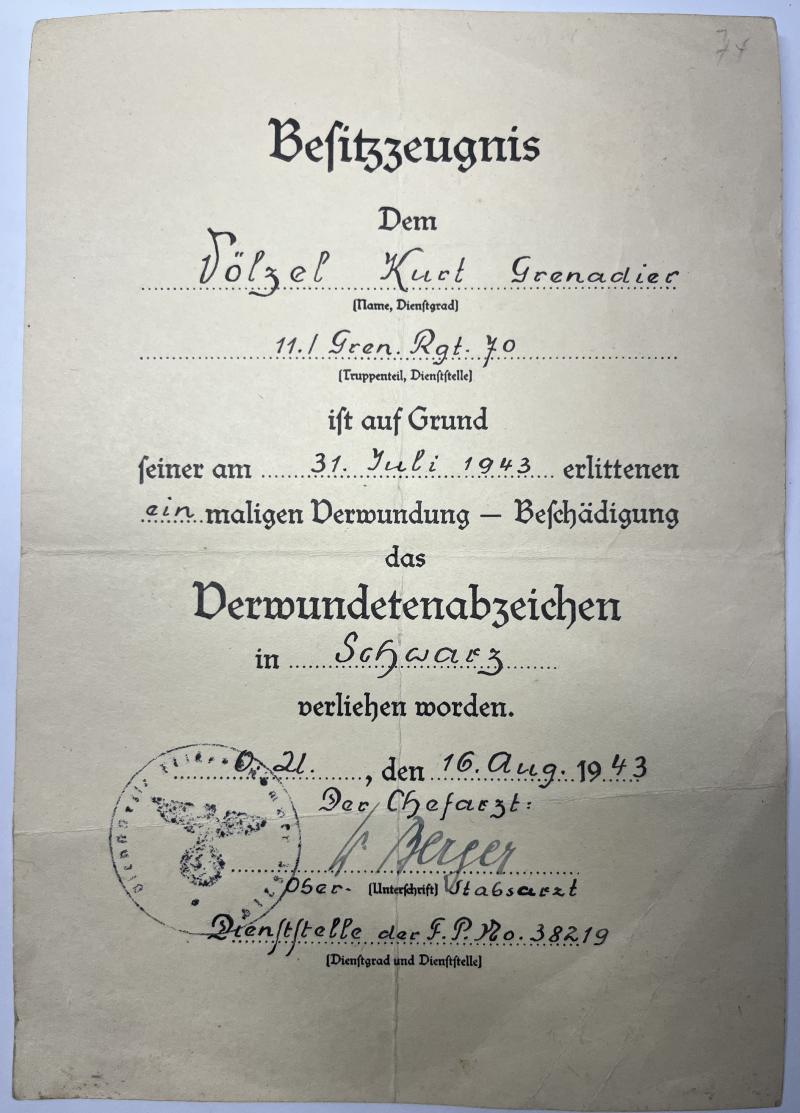 74
Besitzzeugnis
Dem
Völzel Kurt Grenadier
(Name, Dienstgrad)
11./ Gren. Rgt. 70
(Truppenteil, Dienststelle)
ist auf Grund
seiner am 31. Juli 1943 erlittenen
ein maligen Verwundung — Beschädigung
das
Verwundetenabzeichen
in Schwarz
verliehen worden.
O. U., den 16. Aug. 1943
Der Chefarzt:
Berger
Ober- (Unterschrift) Stabsarzt
Dienststelle der F. P. No. 38219
(Dienstgrad und Dienststelle)
Dienststelle Feldpostnummer